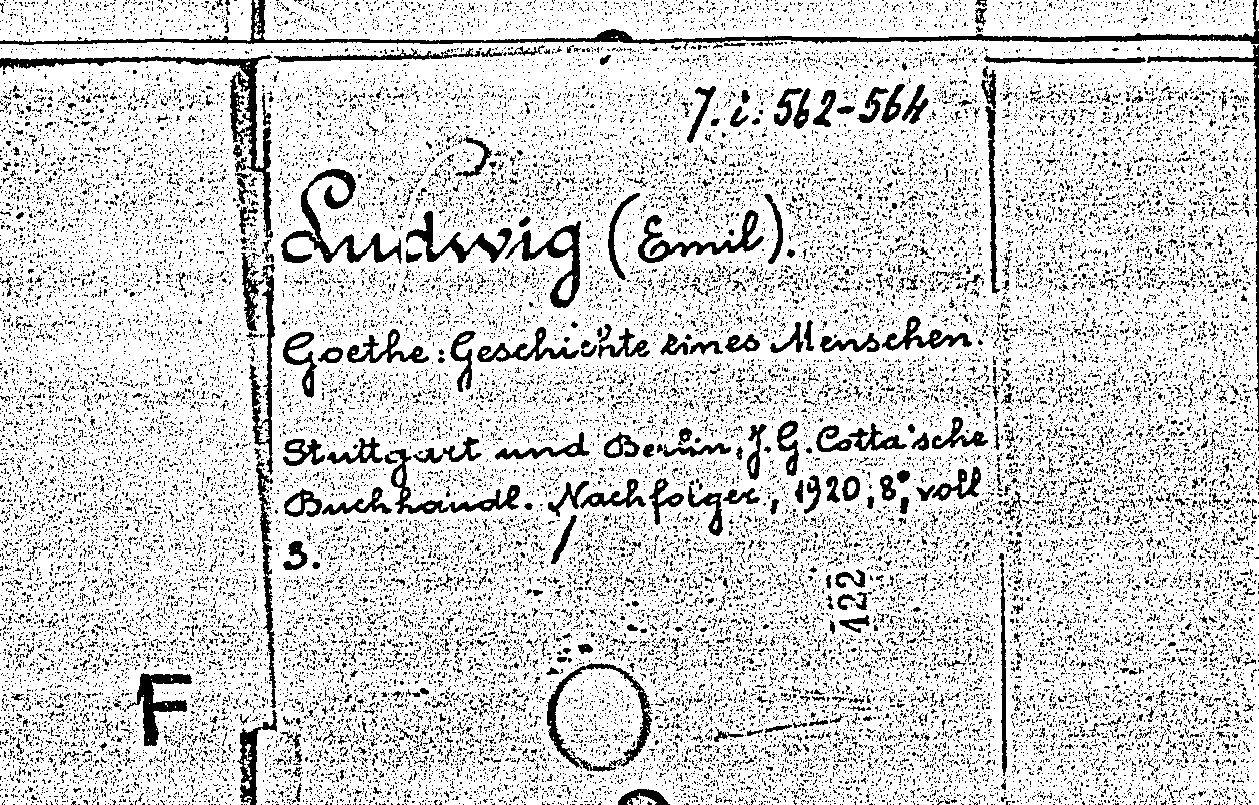 7. i. 562-564
Ludwig (Emil).
Goethe: Geschichte eines Menschen.
Stuttgart und Berlin, J. G. Cotta'sche
Buchhandl. Nachfolger, 1920, 8°, voll
3.
122
F